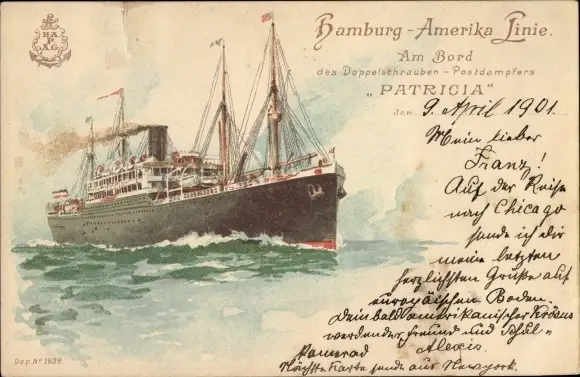 H.A.
P.
A.G.
Hamburg-Amerika Linie.
Am Bord
des Doppelschrauben-Postdampfers
„PATRICIA"
den 9. April 1901.
Mein lieber
Franz!
Auf der Reise
nach Chicago
sende ich dir
meine letzten
herzlichsten Grüße auf
europäischen Boden.
Dein bald amerikanischer Krösus
werdender Freund und Schul-
kamerad Alexis.
Nächste Karte sende aus Newyork.
Dep. No 1538.